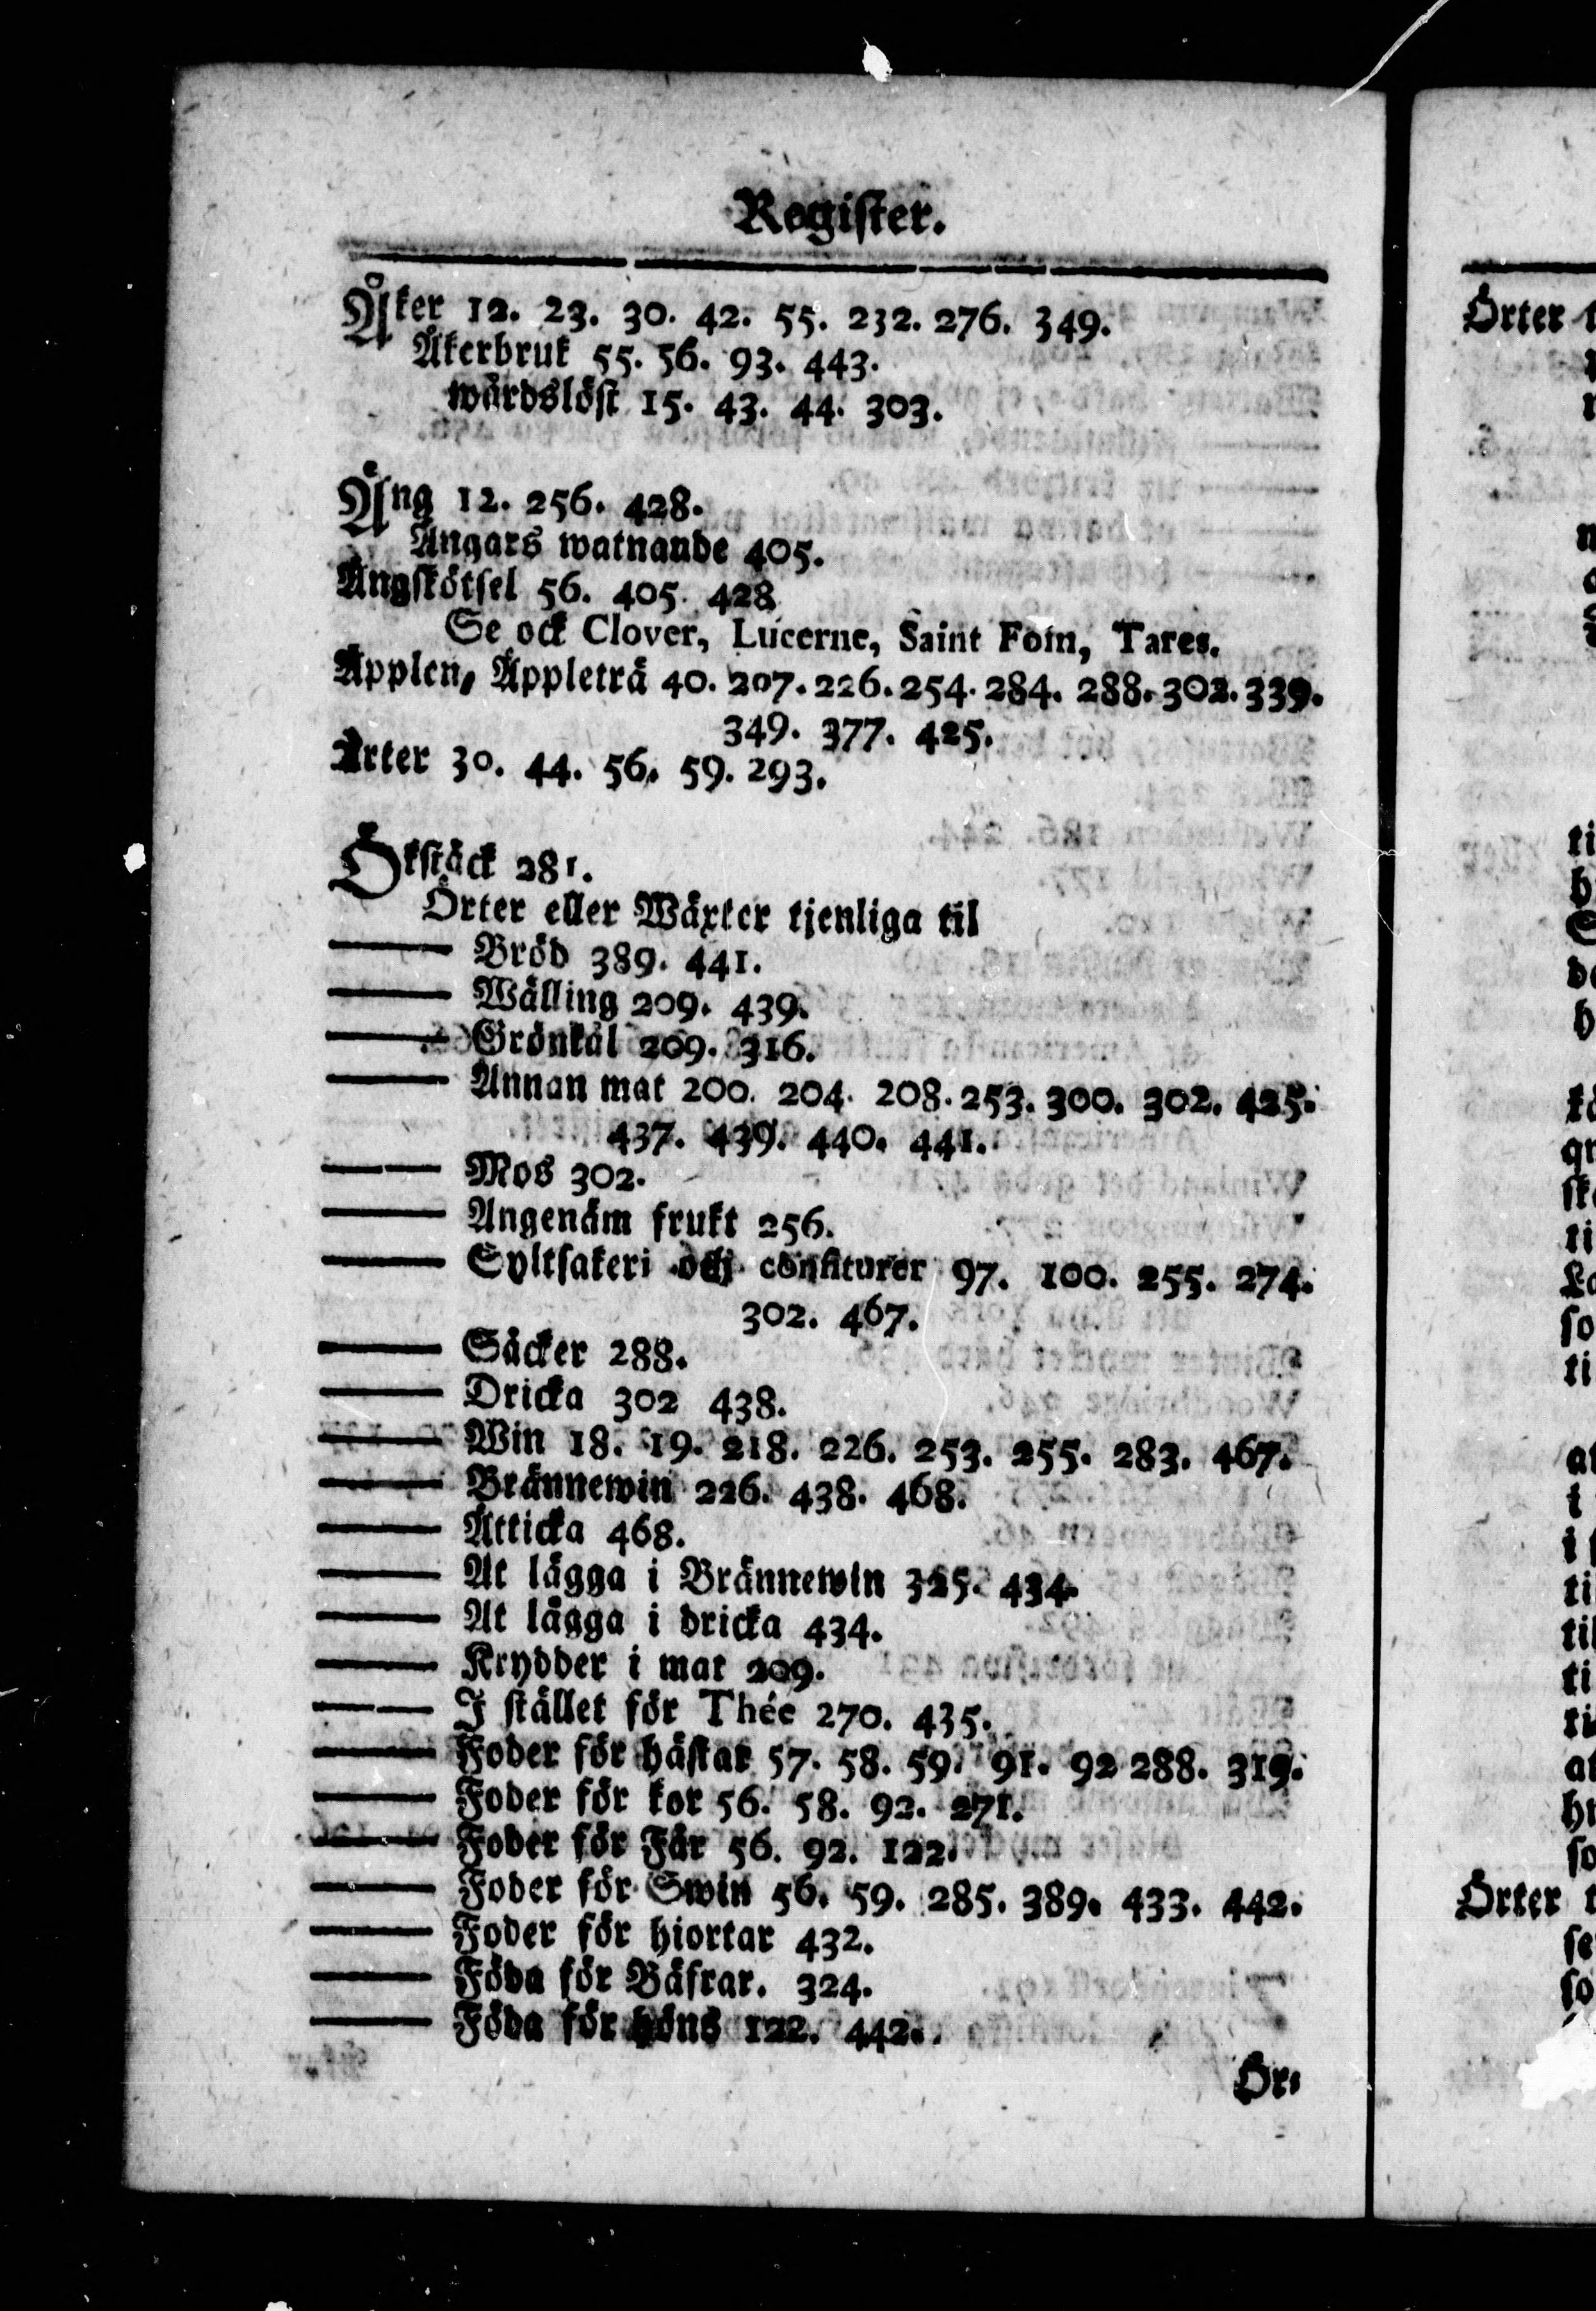 Register.
Åker 12. 23. 30. 42. 55. 232. 276. 349.
Åkerbruk 55. 56. 93. 443.
wårdslöst 15. 43. 44. 303.
Äng 12. 256. 428.
Ängars watnande 405.
Ängskötsel 56. 405. 428
Se ock Clover, Lucerne, Saint Foin, Tares.
Äpplen, Äppleträ 40. 207. 226. 254. 284. 288. 302. 339.
349. 377. 425.
Ärter 30. 44. 56. 59. 293.
Ökstäck 281.
Örter eller Wäxter tjenliga til
—— Bröd 389. 441.
—— Wälling 209. 439.
—— Grönkål 209. 316.
—— Annan mat 200. 204. 208. 253. 300. 302. 425.
437. 439. 440. 441.
—— Mos 302.
—— Angenäm frukt 256.
—— Syltsakeri och confiturer 97. 100. 255. 274.
302. 467.
—— Såcker 288.
—— Dricka 302 438.
—— Win 18. 19. 218. 226. 253. 255. 283. 467.
—— Brännewin 226. 438. 468.
—— Ätticka 468.
—— At lägga i Brännewin 325. 434.
—— At lägga i dricka 434.
—— Krydder i mat 209.
—— I stället för Thée 270. 435.
—— Foder för hästar 57. 58. 59. 91. 92 288. 319.
—— Foder för kor 56. 58. 92. 271.
—— Foder för Får 56. 92. 122.
—— Foder för Swin 56. 59. 285. 389. 433. 442.
—— Foder för hiortar 432.
—— Föda för Bäfrar. 324.
—— Föda för höns 122. 442.
Ör-
Örter
Örter